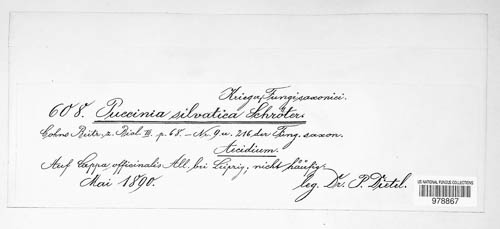 Krieger, Fungi saxonici.
608. Puccinia silvatica Schröter.
Cohns Beitr. z. Biol. III. p. 68. - No. 9 u. 216 der Fung. saxon.
Aecidium.
Auf Lappa officinalis All. bei Leipzig; nicht häufig.
Mai 1890. leg. Dr. P. Dietel.
US NATIONAL FUNGUS COLLECTIONS
978867